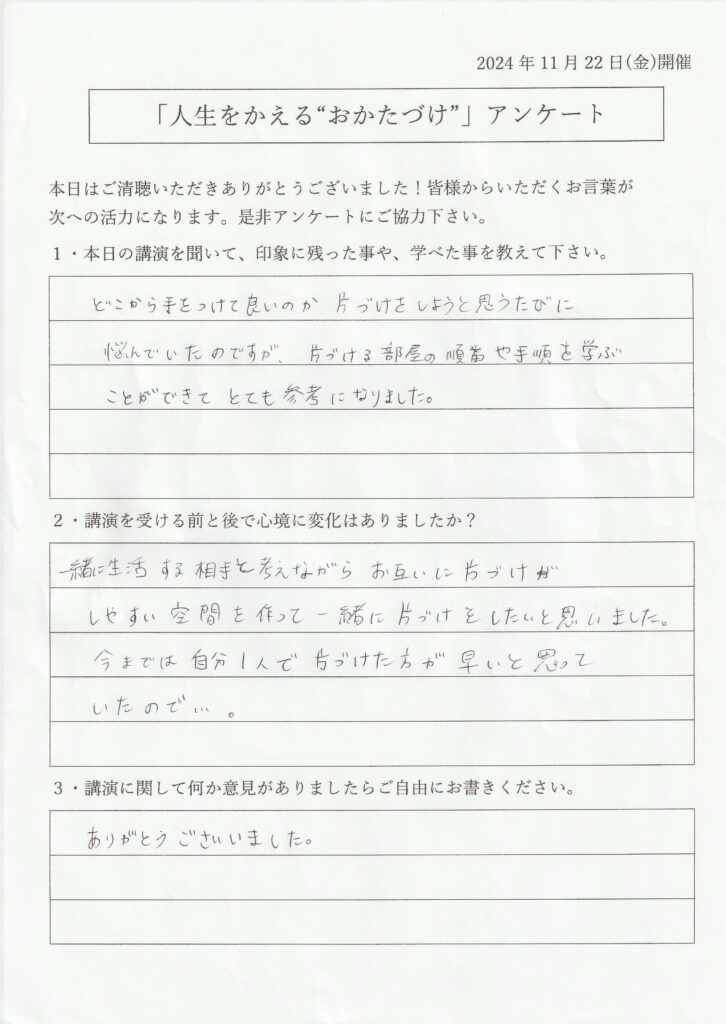 2024 年 11 月 22 日(金)開催
「人生をかえる“おかたづけ”」アンケート
本日はご清聴いただきありがとうございました！皆様からいただくお言葉が
次への活力になります。是非アンケートにご協力下さい。
１・本日の講演を聞いて、印象に残った事や、学べた事を教えて下さい。
どこから手をつけて良いのか 片づけをしようと思うたびに
悩んでいたのですが、片づける部屋の順番や手順を学ぶ
ことができて とても参考になりました。
２・講演を受ける前と後で心境に変化はありましたか？
一緒に生活する相手を考えながら お互いに片づけが
しやすい空間を作って一緒に片づけをしたいと思いました。
今までは自分1人で片づけた方が早いと思って
いたので…。
３・講演に関して何か意見がありましたらご自由にお書きください。
ありがとうございました。